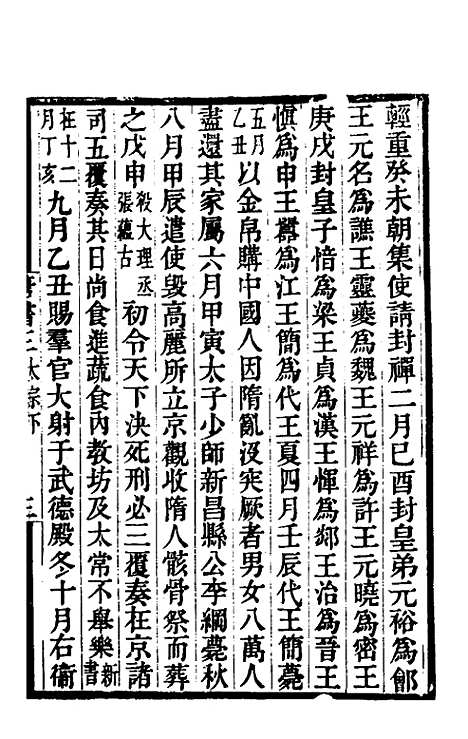 輕重癸未朝集使請封禪二月己酉封皇弟元裕爲鄶
王元名爲譙王靈夔爲魏王元祥爲許王元曉爲密王
庚戌封皇子愔爲梁王貞爲漢王惲爲郯王治爲晉王
慎爲申王囂爲江王簡爲代王夏四月壬辰代王簡薨
五月乙丑以金帛購中國人因隋亂沒突厥者男女八萬人
盡還其家屬六月甲寅太子少師新昌縣公李綱薨秋
八月甲辰遣使毀高麗所立京觀收隋人骸骨祭而葬
之戊申殺大理丞張蘊古初令天下決死刑必三覆奏在京諸
司五覆奏其日尚食進蔬食內教坊及太常不舉樂新書
在十二月丁亥九月乙丑賜羣官大射于武德殿冬十月右衞